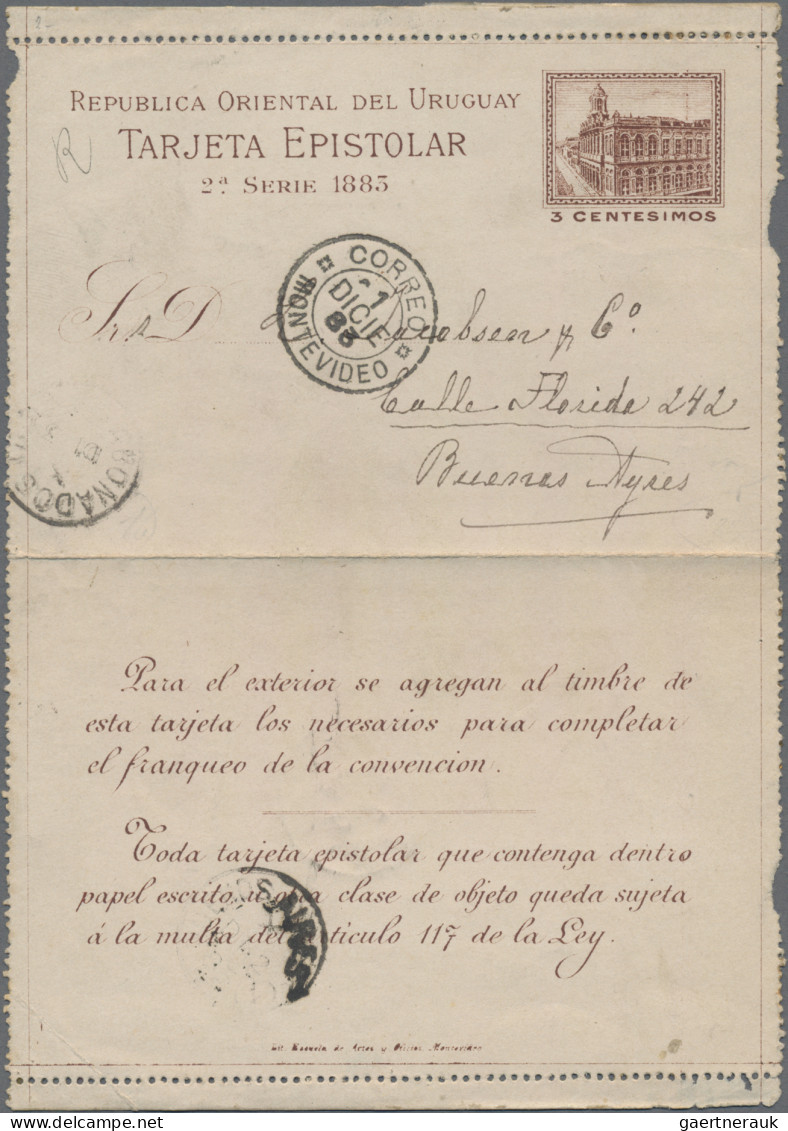 REPUBLICA ORIENTAL DEL URUGUAY
TARJETA EPISTOLAR
2ª SERIE 1883
3 CENTESIMOS
R
CORREO
DICIE
83
MONTEVIDEO
Srs D Jacobsen y Cº
Calle Florida 242
Buenos Ayres
BONADOS
Para el exterior se agregan al timbre de
esta tarjeta los necesarios para completar
el franqueo de la convencion.
Toda tarjeta epistolar que contenga dentro
papel escrito u otra clase de objeto queda sujeta
á la multa del artículo 117 de la Ley.
Lit. Escuela de Artes y Oficios Montevideo
gaertnerauk